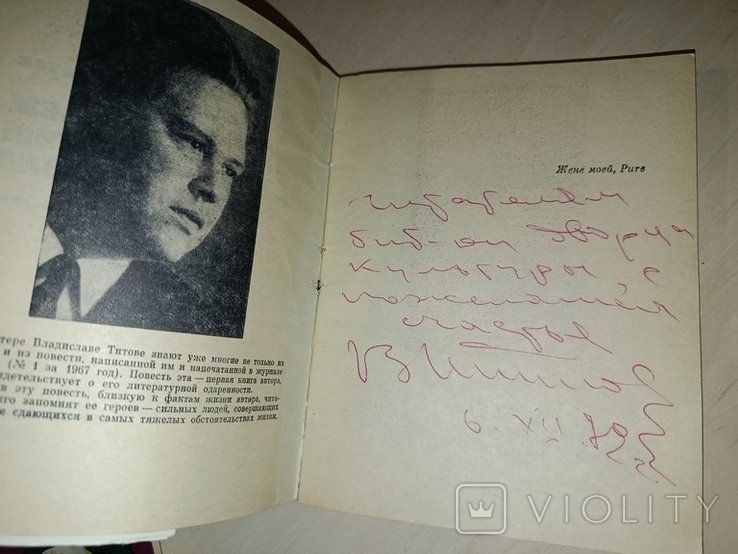 тере Владиславе Титове знают уже многие не только из
и из повести, написанной им и напечатанной в журнале
(№ 1 за 1967 год). Повесть эта — первая книга автора,
детельствует о его литературной одаренности.
в эту повесть, близкую к фактам жизни автора, чита-
го запомнят ее героев — сильных людей, совершающих
е сдающихся в самых тяжелых обстоятельствах жизни.
Жене моей, Рите
читателям
биб-ки дворца
культуры, с
пожеланием
счастья
В Титов
6. XII
VIOLITY